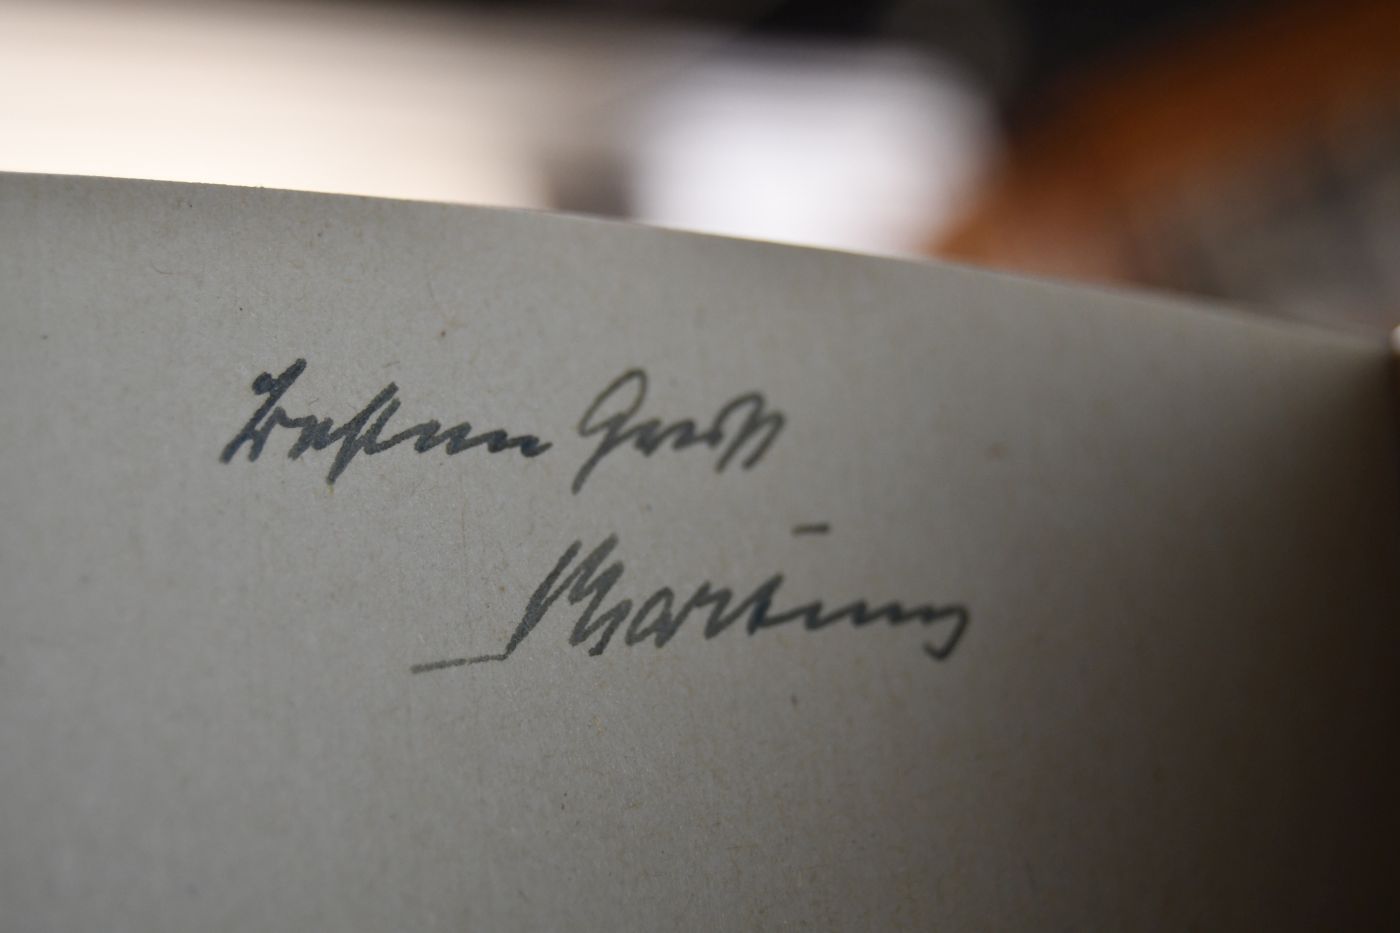 Besten Gruß
Martung